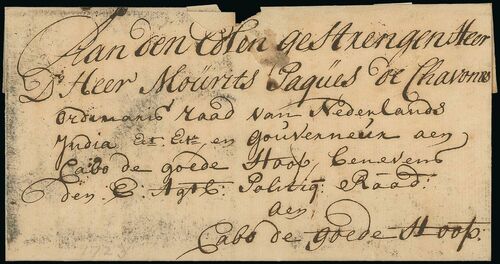 Aan den Edlen gestrengen Heer
Dr Heer Moürits Paqües de Chavonnes
ordinaris Raad van Nederlands
India Etc. Etc. en Gouverneur aen
Cabo de goede Hoop, benevens
den E. Agtb. Politiq Raad.
aen
Cabo de goede Hoop.